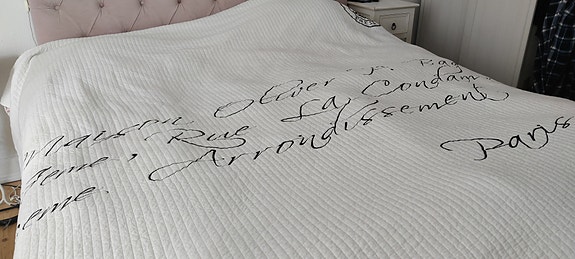 Maison Olivier
Rue La Condam
eme. Arrondissement
Paris